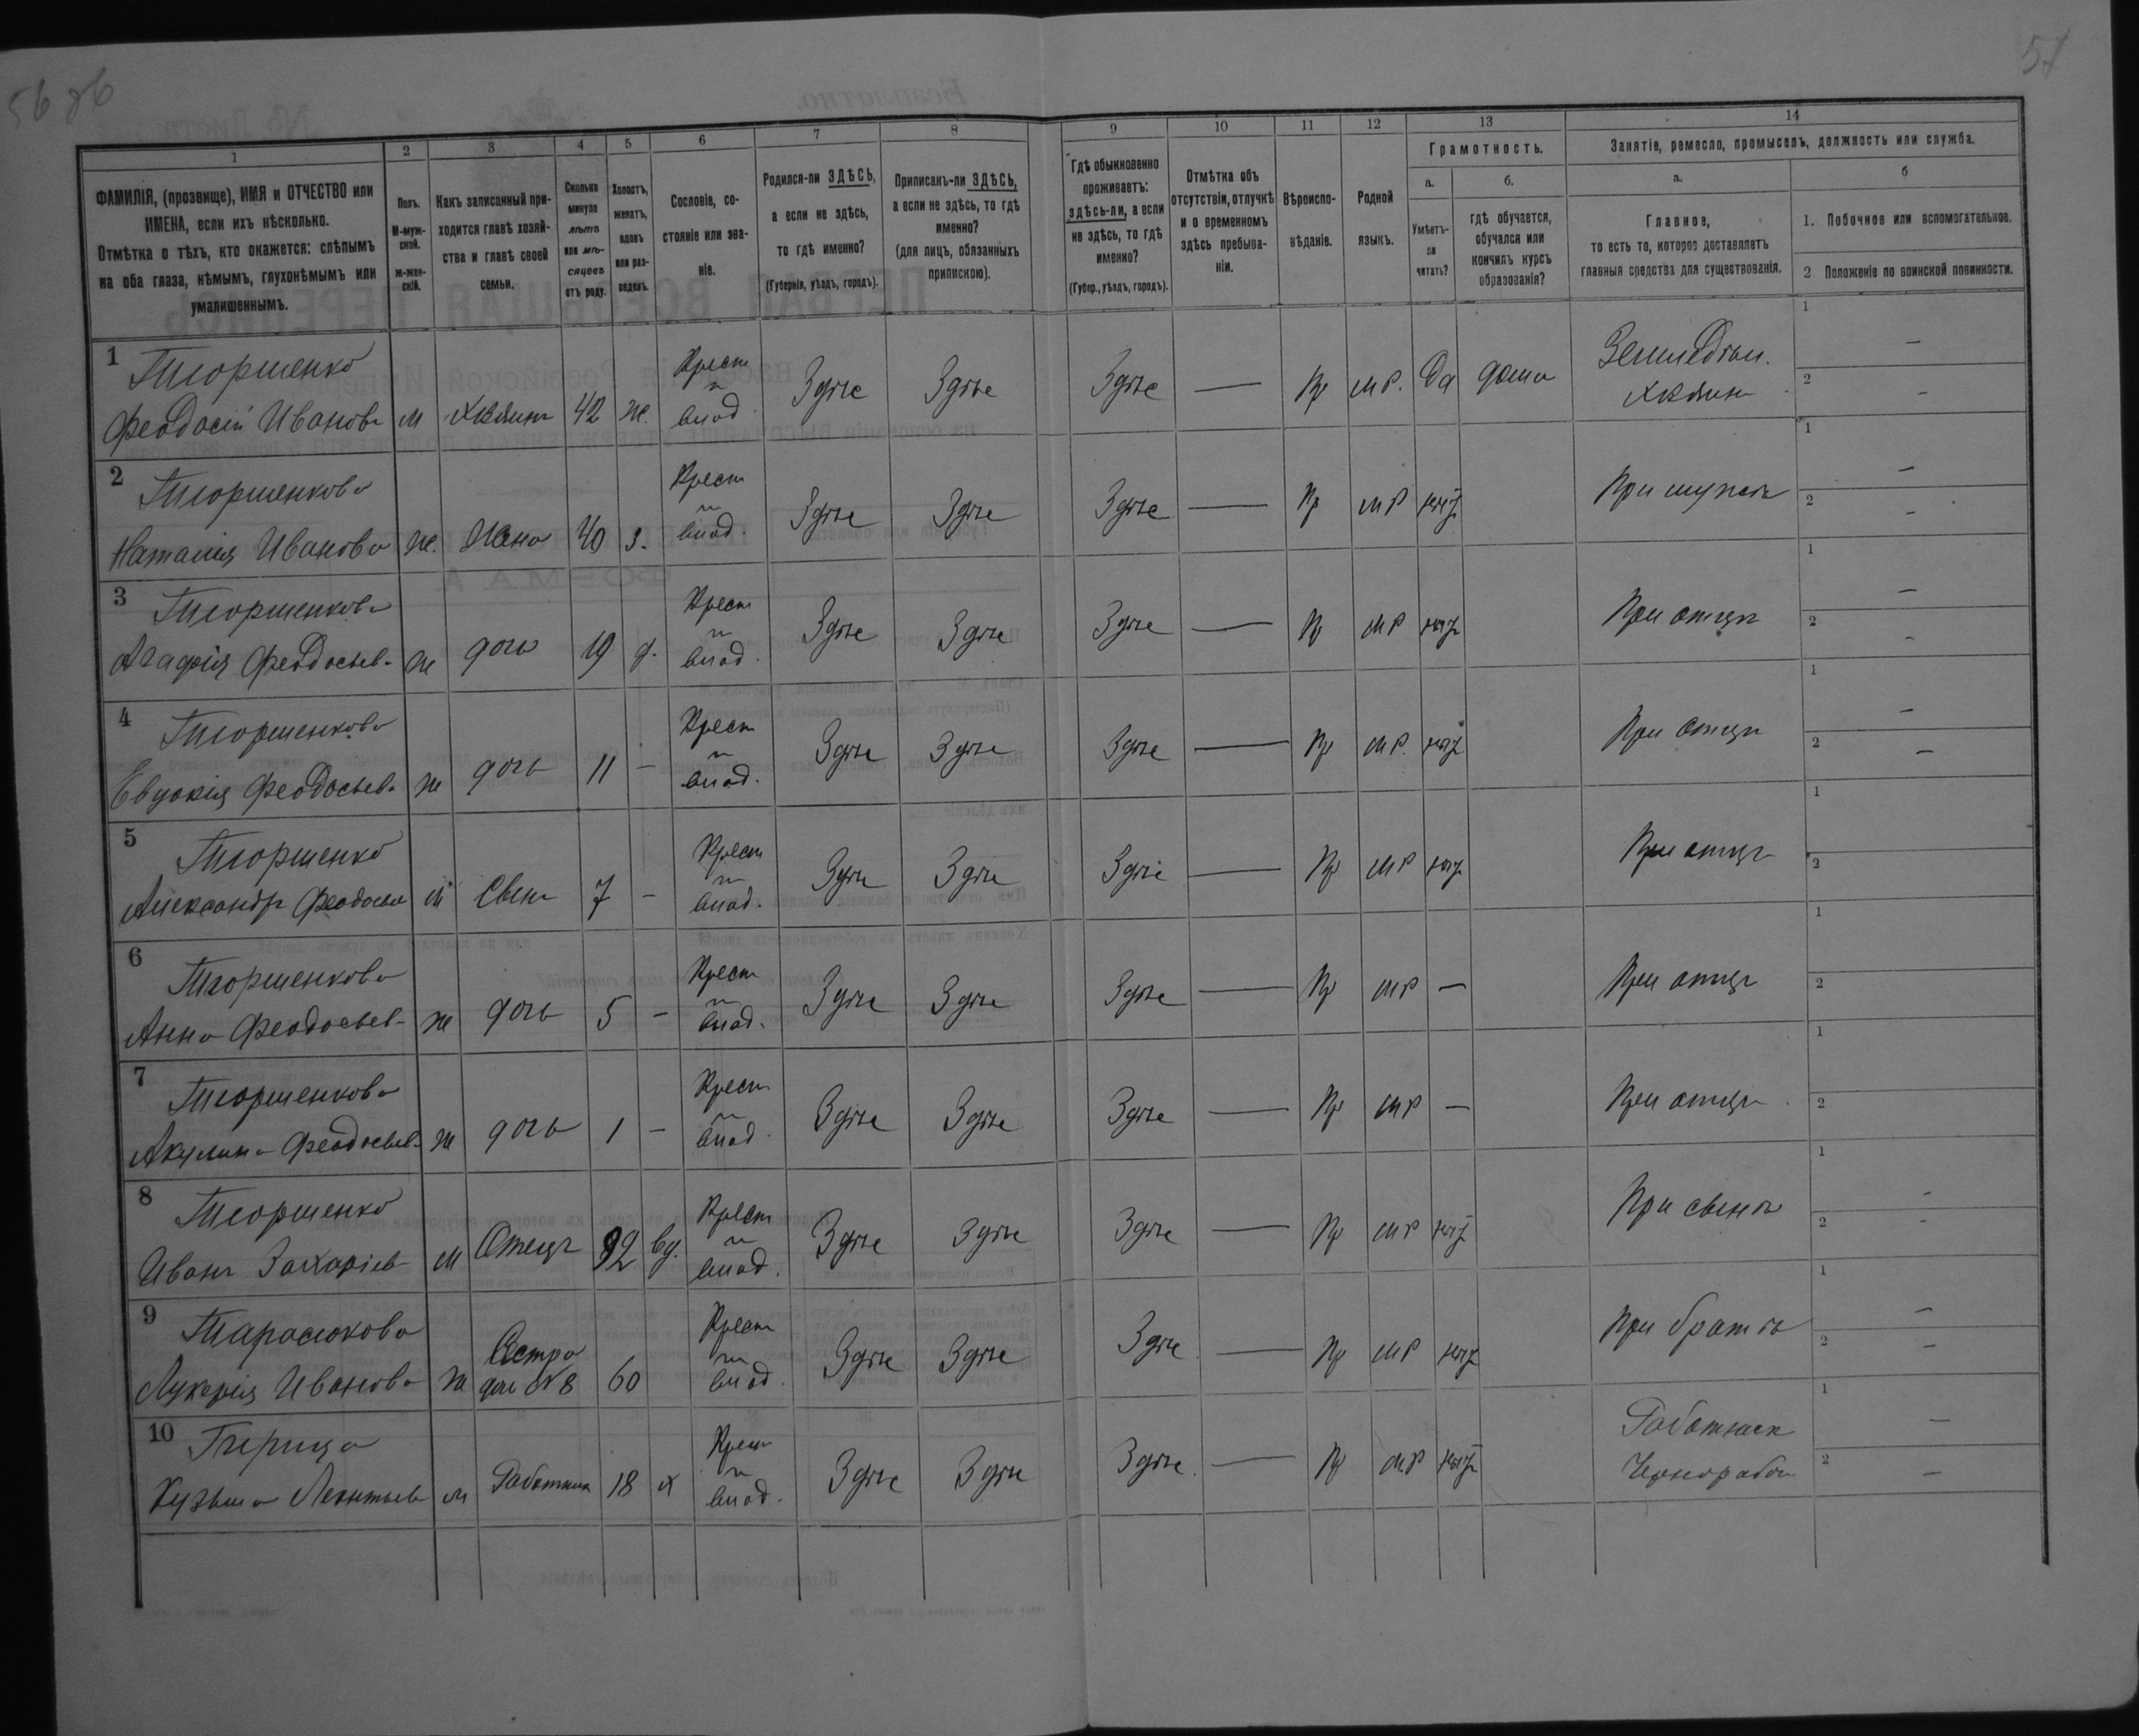 56 об
57
1 2 3 4 5 6 7 8 9 10 11 12 13 14
ФАМИЛІЯ, (прозвище), ИМЯ и ОТЧЕСТВО или
ИМЕНА, если ихъ нѣсколько.
Отмѣтка о тѣхъ, кто окажется: слѣпымъ
на оба глаза, нѣмымъ, глухонѣмымъ или
умалишеннымъ.
Полъ.
М-муж-
ской.
ж-жен-
скій.
Какъ записанный при-
ходится главѣ хозяй-
ства и главѣ своей
семьи.
Сколько
минуло
лѣтъ
или мѣ-
сяцевъ
отъ роду.
Холостъ,
женатъ,
вдовъ
или раз-
веденъ.
Сословіе, со-
стояніе или зва-
ніе.
Родился-ли ЗДѢСЬ,
а если не здѣсь,
то гдѣ именно?
(Губернія, уѣздъ, городъ).
Приписанъ-ли ЗДѢСЬ,
а если не здѣсь, то гдѣ
именно?
(для лицъ, обязанныхъ
припискою).
Гдѣ обыкновенно
проживаетъ:
здѣсь-ли, а если
не здѣсь, то гдѣ
именно?
(Губер., уѣздъ, городъ).
Отмѣтка объ
отсутствіи, отлучкѣ
и о временномъ
здѣсь пребыва-
ніи.
Вѣроиспо-
вѣданіе.
Родной
языкъ.
Грамотность.
а.
Умѣетъ-
ли
читать?
б.
гдѣ обучается,
обучался или
кончилъ курсъ
образованія?
Занятіе, ремесло, промыселъ, должность или служба.
а.
Главное,
то есть то, которое доставляетъ
главныя средства для существованія.
б
1. Побочное или вспомогательное.
2. Положеніе по воинской повинности.
1 Тюрменко Крест Земледѣл. 1 —
Феодосій Ивановъ м Хозяинъ 42 ж. из влад Здѣсь Здѣсь Здѣсь — Пр м.р. Да дома Хозяинъ 2 -
2 Тюрменкова Крест 1 —
Наталія Иванова ж. Жена 40 з. из влад. Здѣсь Здѣсь Здѣсь — Пр м р нѣт При мужѣ 2 -
3 Тюрменкова Крест 1 —
Агафія Феодосьев. ж дочь 19 д. из влад. Здѣсь Здѣсь Здѣсь — Пр м р нѣт При отцѣ 2 -
4 Тюрменкова Крест 1 —
Евдокія Феодосьев. ж дочь 11 - из влад. Здѣсь Здѣсь Здѣсь — Пр м р. нѣт При отцѣ 2 —
5 Тюрменко Крест 1
Александръ Феодосьев м Сынъ 7 - из влад. Здѣсь Здѣсь Здѣсь — Пр м р нѣт При отцѣ 2
6 Тюрменкова Крест 1
Анна Феодосьев. ж дочь 5 - из влад. Здѣсь Здѣсь Здѣсь — Пр м р — При отцѣ 2
7 Тюрменкова Крест 1
Акулина Феодосьев. ж дочь 1 - из влад. Здѣсь Здѣсь Здѣсь — Пр м р — При отцѣ 2
8 Тюрменко Крест 1 -
Иванъ Захаріев м Отецъ 92 вд. из влад. Здѣсь Здѣсь Здѣсь — Пр м р нѣт При сынѣ 2 -
9 Тарасюкова Сестра Крест 1 —
Лукерія Иванова ж дочь №8 60 из влад. Здѣсь Здѣсь Здѣсь — Пр м р нѣт При братѣ 2 —
10 Крест Работник 1 —
Кузьма Леонтьев м Работник 18 х из влад. Здѣсь Здѣсь Здѣсь. — Пр м.р нѣт Чернорабоч 2 —